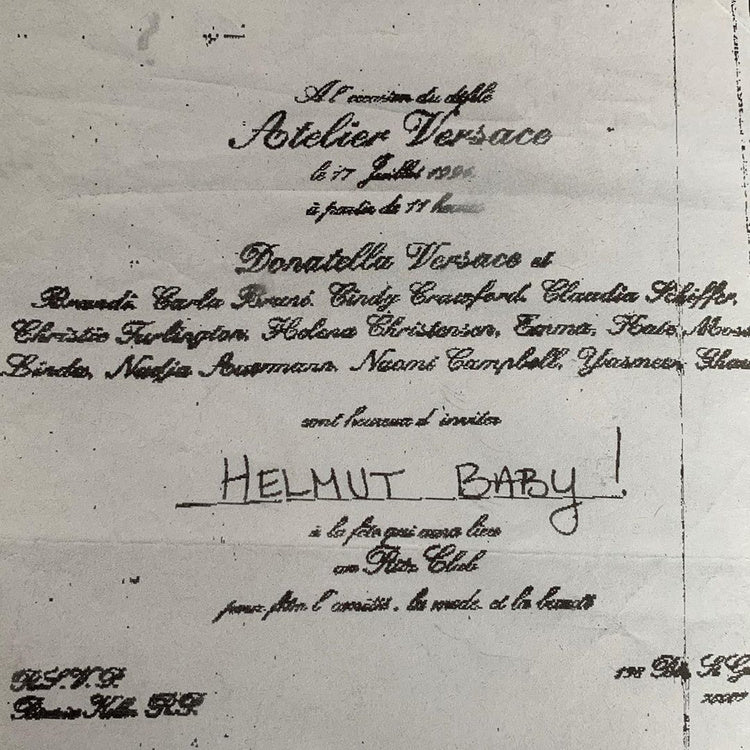 A l'occasion du défilé
Atelier Versace
le 17 Juillet
à partir de 11 heures
Donatella Versace et
Brandi, Carla Bruni, Cindy Crawford, Claudia Schiffer,
Christie Turlington, Helena Christensen, Emma, Kate Moss
Linda, Nadja Auermann, Naomi Campbell, Yasmeen
sont heureux d'inviter
HELMUT BABY!
à la fête qui aura lieu
au Ritz Club
pour fêter l'amitié, la mode et la beauté
R.S.V.P.
R.P.